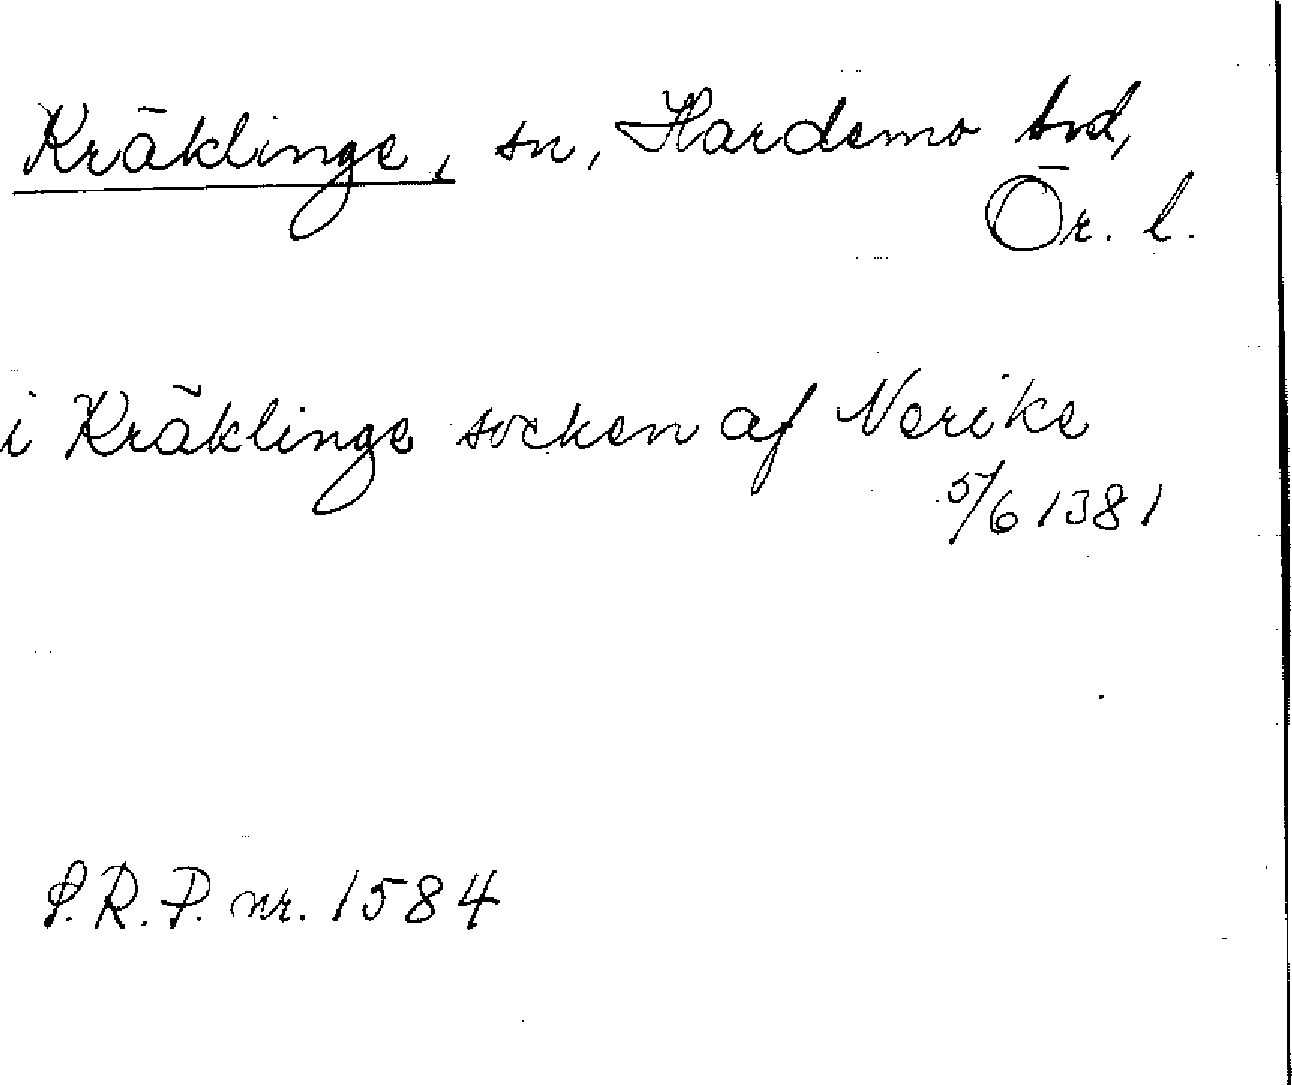 Kräklinge, sn, Hardemo hd,
Ör. l.
i Kräklinge socken af Nerike
5/6 1381
S.R.P. nr. 1584